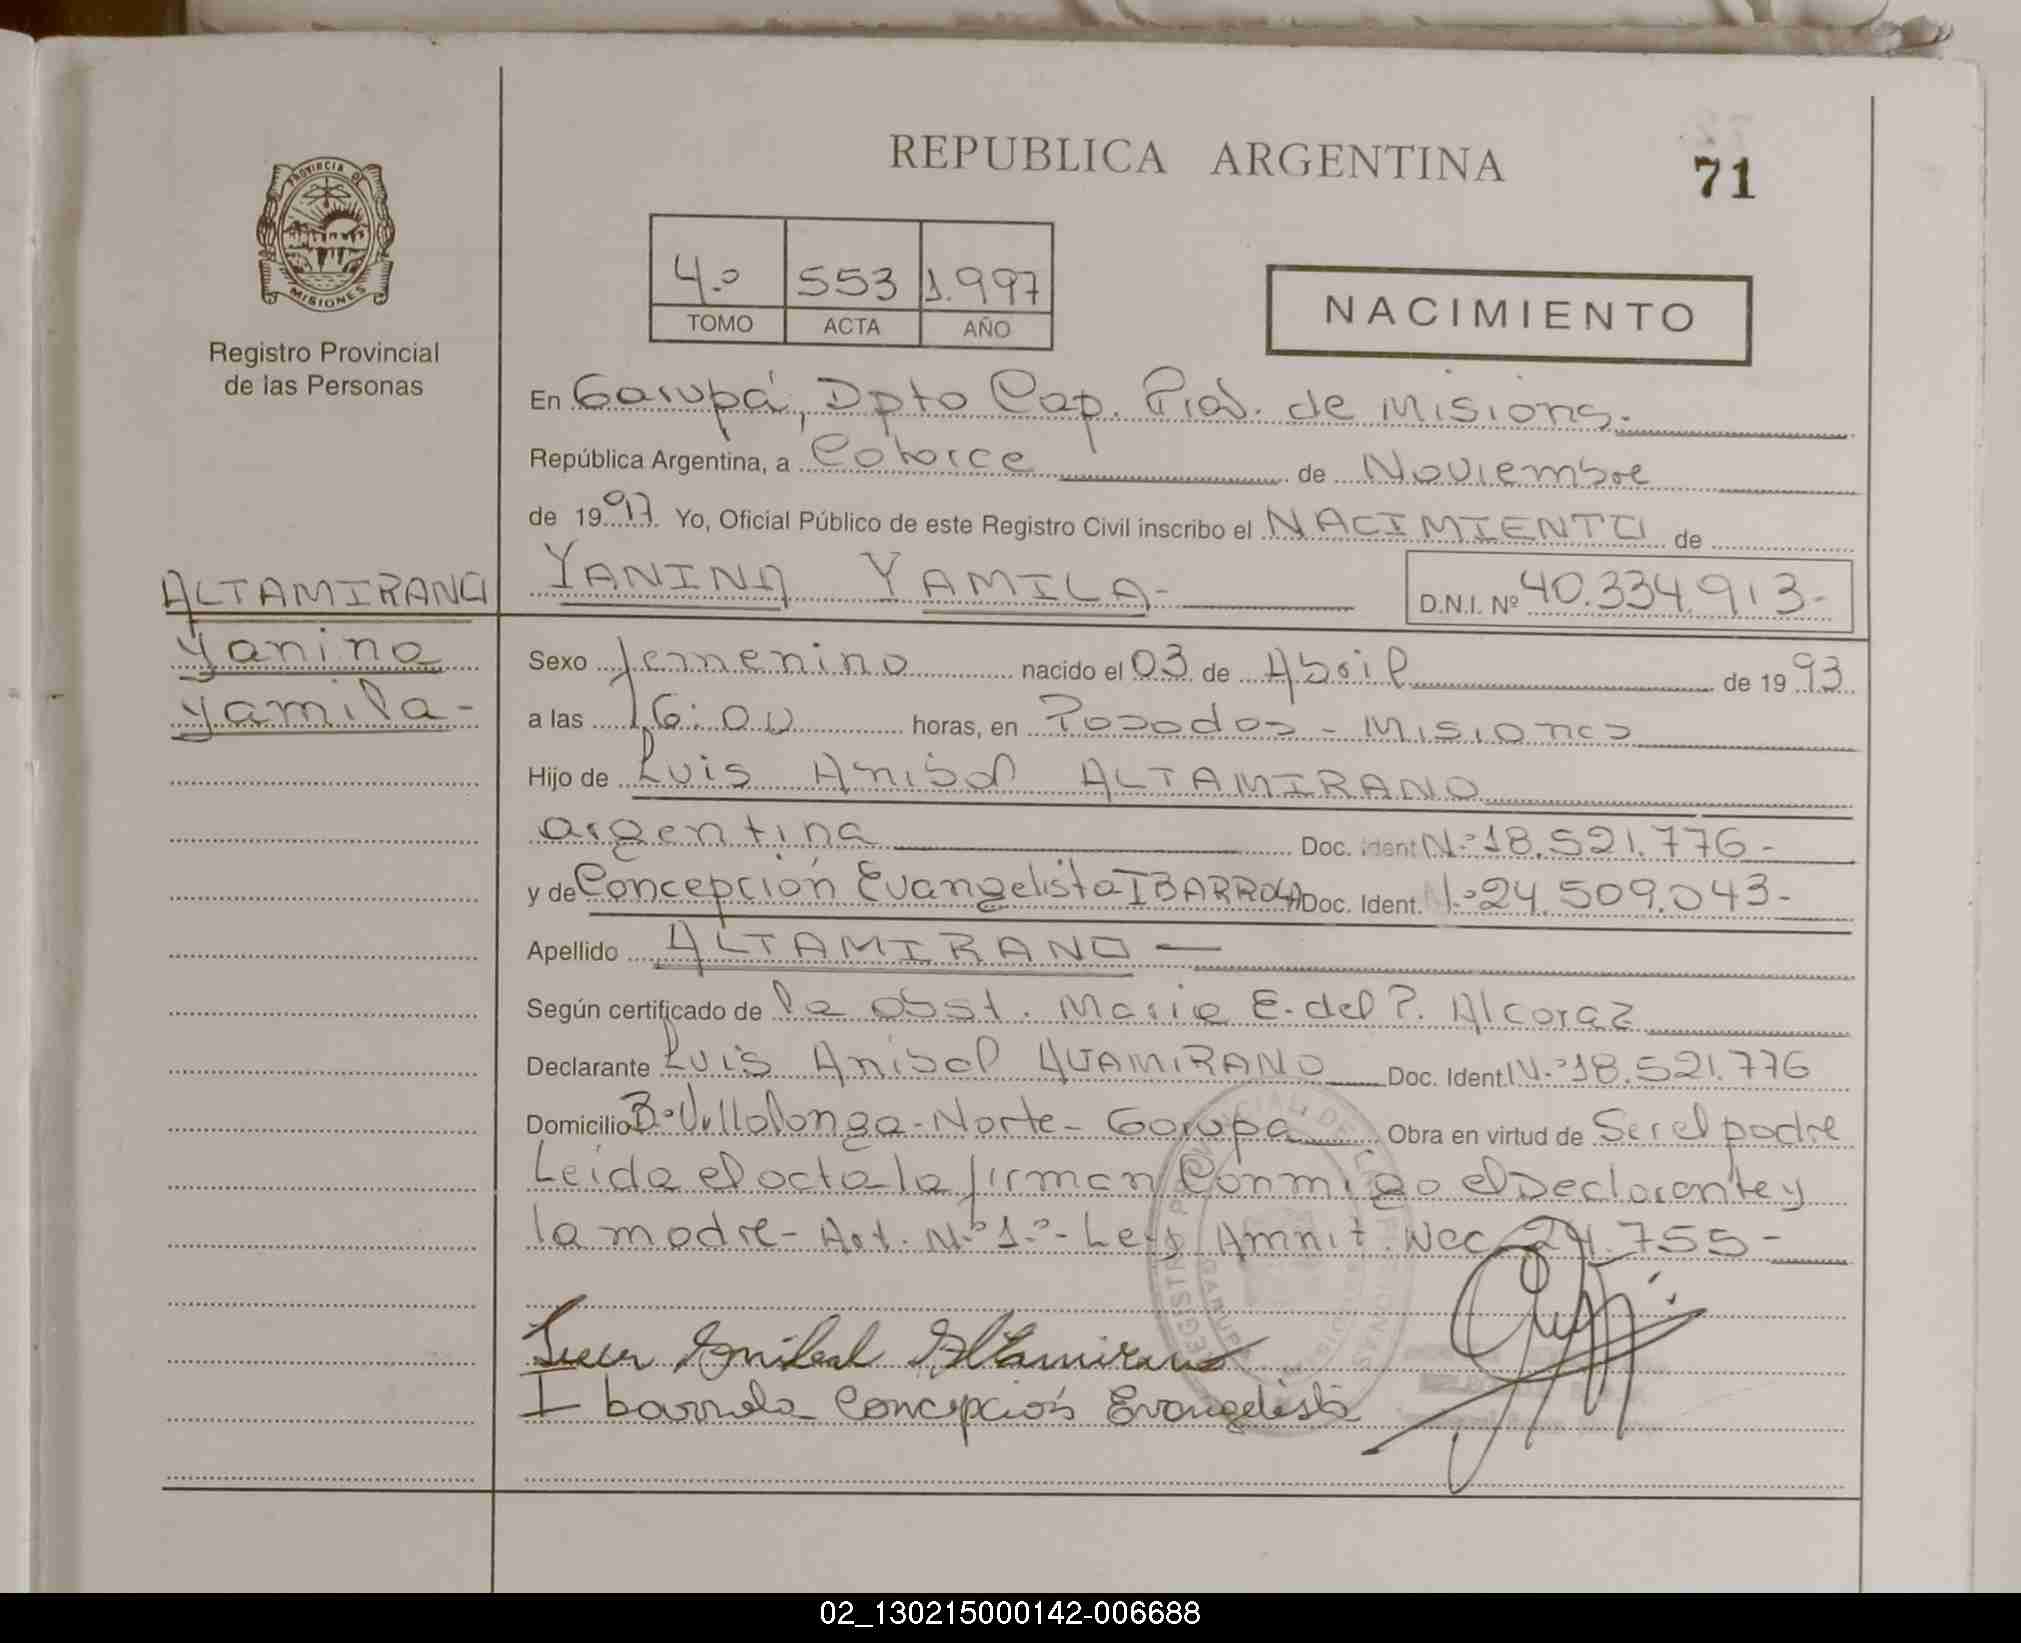 REPUBLICA ARGENTINA
71
PROVINCIA DE
MISIONES
Registro Provincial
de las Personas
4.º 553 1.997
TOMO ACTA AÑO
NACIMIENTO
En Garupá, Dpto Cap. Pia. de Misions.
República Argentina, a Catorce de Noviembre
de 1997. Yo, Oficial Público de este Registro Civil inscribo el NACIMIENTO de
YANINA YAMILA- D.N.I. Nº 40.334.913-
ALTAMIRANO
Yanina
Yamila-
Sexo femenino nacido el 03 de Abril de 1993
a las 16:00 horas, en Posadas - Misiones
Hijo de Luis Anibal ALTAMIRANO
argentina Doc. Ident Nº 18.521.776-
y de Concepción Evangelista IBARROLA Doc. Ident. Nº 24.509.043-
Apellido ALTAMIRANO —
Según certificado de la obst. Maria E. del P. Alcaraz
Declarante Luis Anibal ALTAMIRANO Doc. Ident. Nº 18.521.776
Domicilio Bº Villalonga-Norte- Garupa Obra en virtud de Ser el padre
Leida el acta la firman conmigo el Declarante y
la madre- Art. Nº 1º- Ley Amnit. Nac. 24.755-
Luis Anibal Altamirano
Ibarrola Concepción Evangelista
02_130215000142-006688